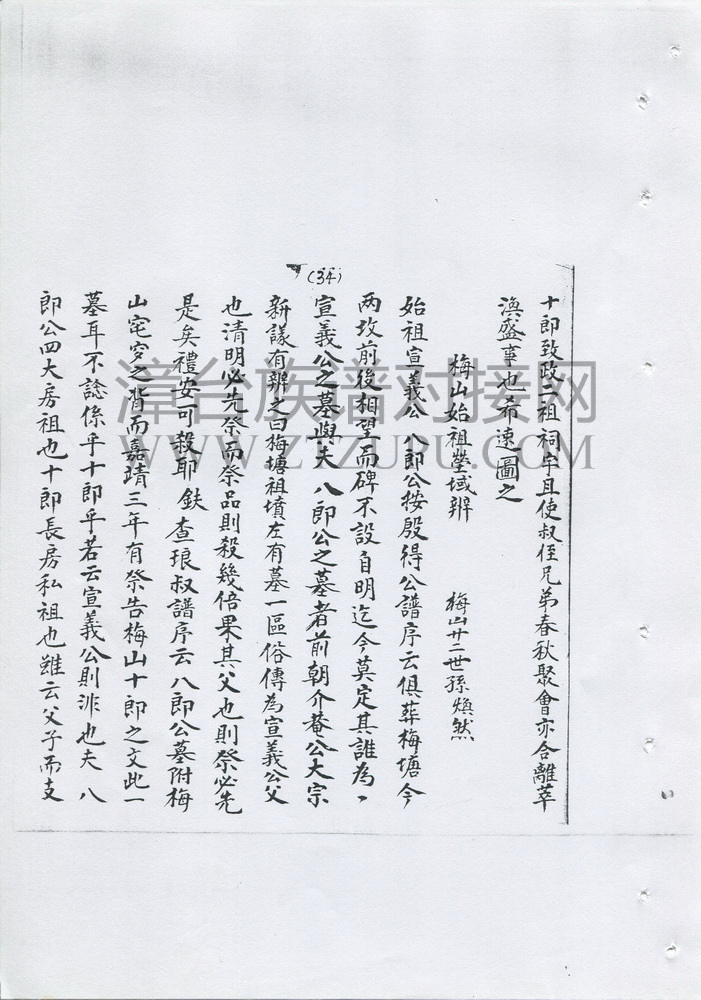 (34)
十郎致政二祖祠宇且使叔侄兄弟春秋聚會亦合離萃
渙盛事也希速圖之
梅山始祖塋域辨 梅山廿二世孫煥然
始祖宣義公八郎公按殷得公譜序云俱葬梅塘今
两坟前後相望而碑不設自明迄今莫定其誰為、
宣義公之墓與夫八郎公之墓者前朝介菴公大宗
新議有辨之曰梅塘祖墳左有墓一區俗傳為宣義公父
也清明必先祭而祭品則殺幾倍果其父也則祭必先
是矣禮安可殺耶鈇查琅叔譜序云八郎公墓附梅
山宅穸之背而嘉靖三年有祭告梅山十郎之文此一
墓耳不諗係乎十郎乎若云宣義公則非也夫八
郎公四大房祖也十郎長房私祖也雖云父子而支
漳台族谱对接网
WWW.ZTZUPU.COM